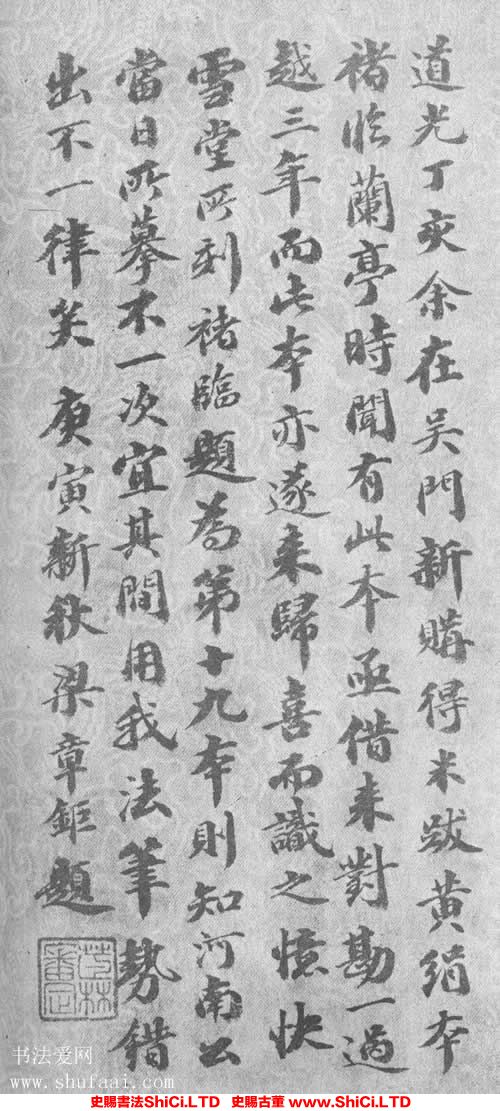 道光丁亥余在吴門新購得米跋黄絹本
褚臨蘭亭時聞有此本亟借来對勘一過
越三年而此本亦遂来歸喜而識之憶快
雪堂所刻褚臨題為第十九本則知河南公
當日所摹不一次宜其間用我法筆勢錯
出不一律矣 庚寅新秋梁章鉅題
茝林審定
书法爱网
www.shufaai.com
史賜書法ShiCi.LTD 史賜古董 www.ShiCi.LTD